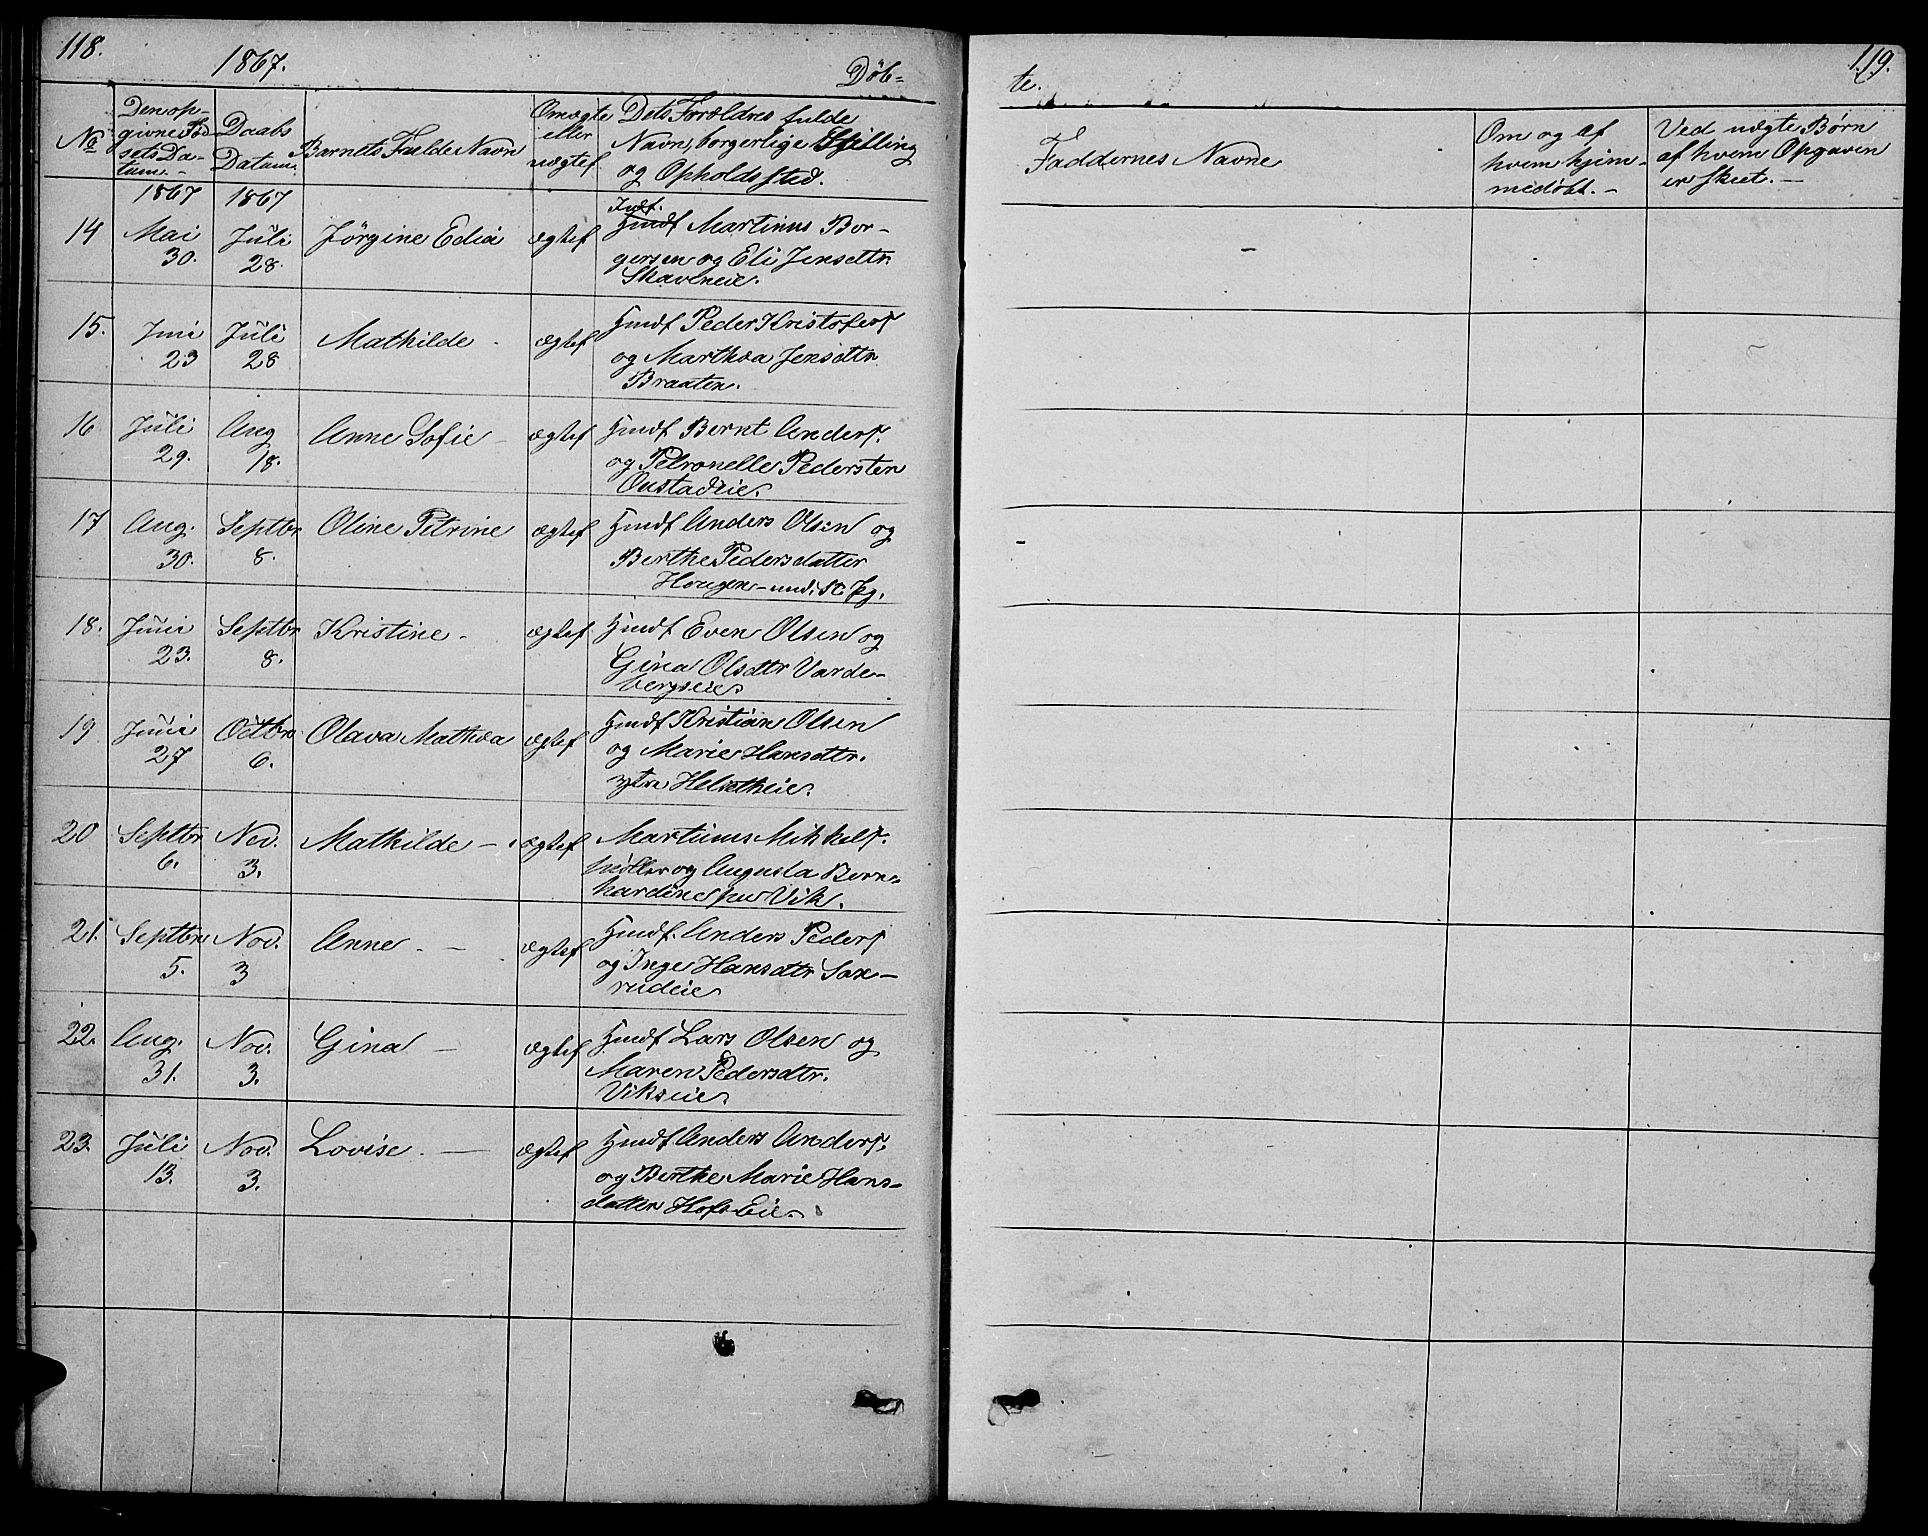 118.
1867.
Døb-
No
Den op-
givne Fød-
sels Da-
tum.-
Daabs
Datum.
Barnets Fulde Navn
Om ægte
eller
uægtef.
Dets Forældres fulde
Navn, borgerlige Stilling
og Opholdssted.
1867 1867
14 Mai 30. Juli 28. Jörgine Edia ægtef Indf.
Huusf Martinus Bor-
gersen og Eli Jensdtr.
Skavlneie.
15. Juni 23 Juli 28 Mathilde - ægtef Huusf Peder Kristofers
og Marthea Jensdtr
Braaten.
16 Juli 29. Aug 18. Anne Sofie - ægtef Huusf Bernt Anders.
og Petronelle Pedersten
Onstadeie.
17 Aug. 30. Septbr 8. Oline Petrine ægtef Huusf Anders Olsen og
Berthe Pedersdatter
Hougen - und.
18. Juni 23. Septbr 8. Kristine - ægtef Huusf Even Olsen og
Gina Olsdtr Varde-
bergseie
19 Juni 27 Octbr 6. Olava Mathea ægtef Huusf Kristian Olsen
og Marie Hansdtr.
ytre Helsetheie.
20 Septbr 6. Nov. 3. Mathilde - ægtef Martinus Mikkels.
Møller og Augusta Bern-
hardine paa Vik.
21. Septbr 5. Nov. 3 Anne - - ægtef Huusf. Anders Peders
og Inge Hansdtr Sax-
rudeie
22. Aug. 31. Nov. 3. Gina - ægtef Huusf Lars Olsen og
Maren Pedersdtr.
Vikseie
23. Juli 13. Nov. 3. Lovise - ægtef Huusf Anders Anders.
og Berthe Marie Hans-
datter Hofs Eie.
119.
te.
Faddernes Navne
Om og af
hvem hjem-
medøbt. -
Ved uægte Børn
af hvem Opgaven
er skeet. -